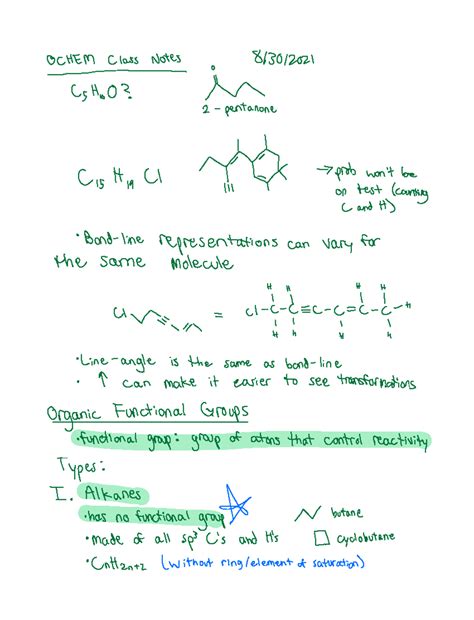 OCHEM Class Notes 8/30/2021
C5H10O?
2-pentanone
C15H19Cl
→ prob won't be
on test (counting
C and H)
• Bond-line representations can vary for
the same molecule
Cl = Cl-C-C≡C-C=C-C-H
• Line-angle is the same as bond-line
• ↑ can make it easier to see transformations
Organic Functional Groups
• functional group: group of atoms that control reactivity
Types:
I. Alkanes
• has no functional group
butane
• made of all sp3 C's and H's
cyclobutane
• CnH2n+2 (without ring/element of saturation)